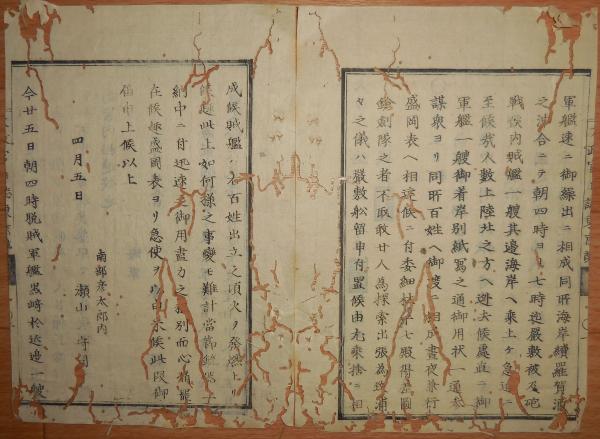 軍艦速ニ御繰出ニ相成同所海岸續羅賀浦
之沖合ニテ朝四時ヨリ七時迄嚴敷被及砲
戰候内賊艦一艘其邊海岸ヘ乗上ケ急速ニ
至候哉人數上陸北之方ヘ迯去候處直ニ御
軍艦一艘御着岸別紙寫之通御用状一通太
謀衆ヨリ同所百姓ヘ御渡ニ相成晝夜兼行
盛岡表ヘ相達候ニ付委細
銃劍隊之者不取敢廿人為探索出張為致浦
々之儀ハ嚴敷舩留申付置候由尤乗捨ニ相
成候賊艦ハ右百姓出立之頃火ヲ發燃上リ
候趣此上如何様之事變モ難計當節
納中ニ付迅速
在候趣盛岡表ヨリ急使ヲ以申來候此段御
届申上候以上
四月五日
南部彦太郎内
瀬山
今廿五日朝四時脱賊軍艦黒﨑於近邊一艘